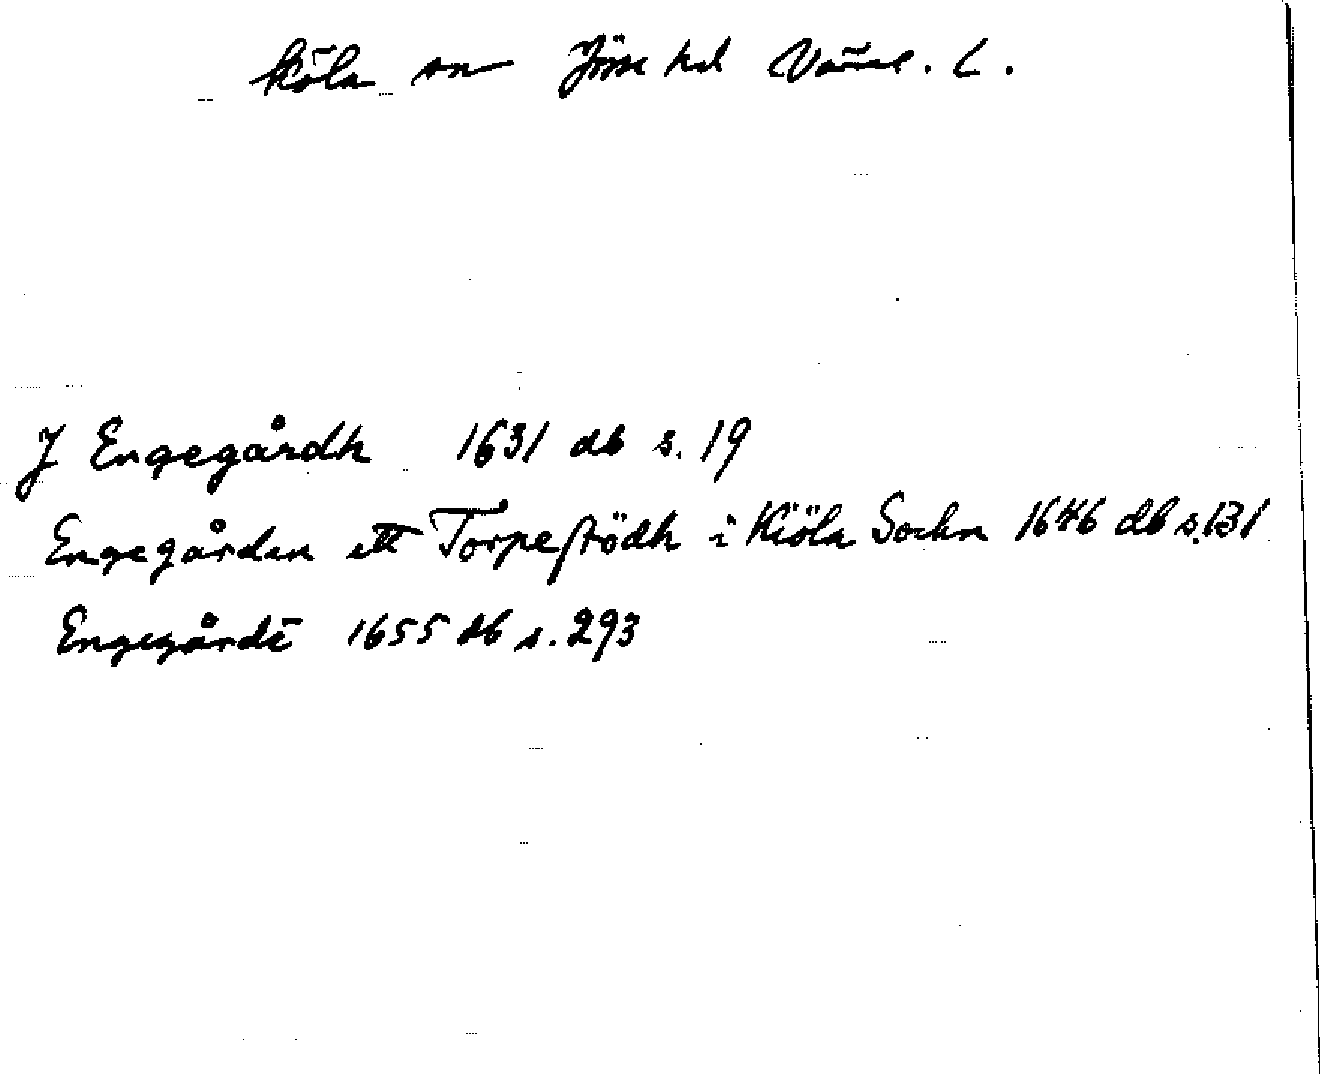 Köla sn Jösse hd Värml. L.
J Engegårdh 1631 db s. 19
Engegården ett Torpestödh i Kiöla Sochn 1646 db s. 131
Engegårdē 1655 db s. 293